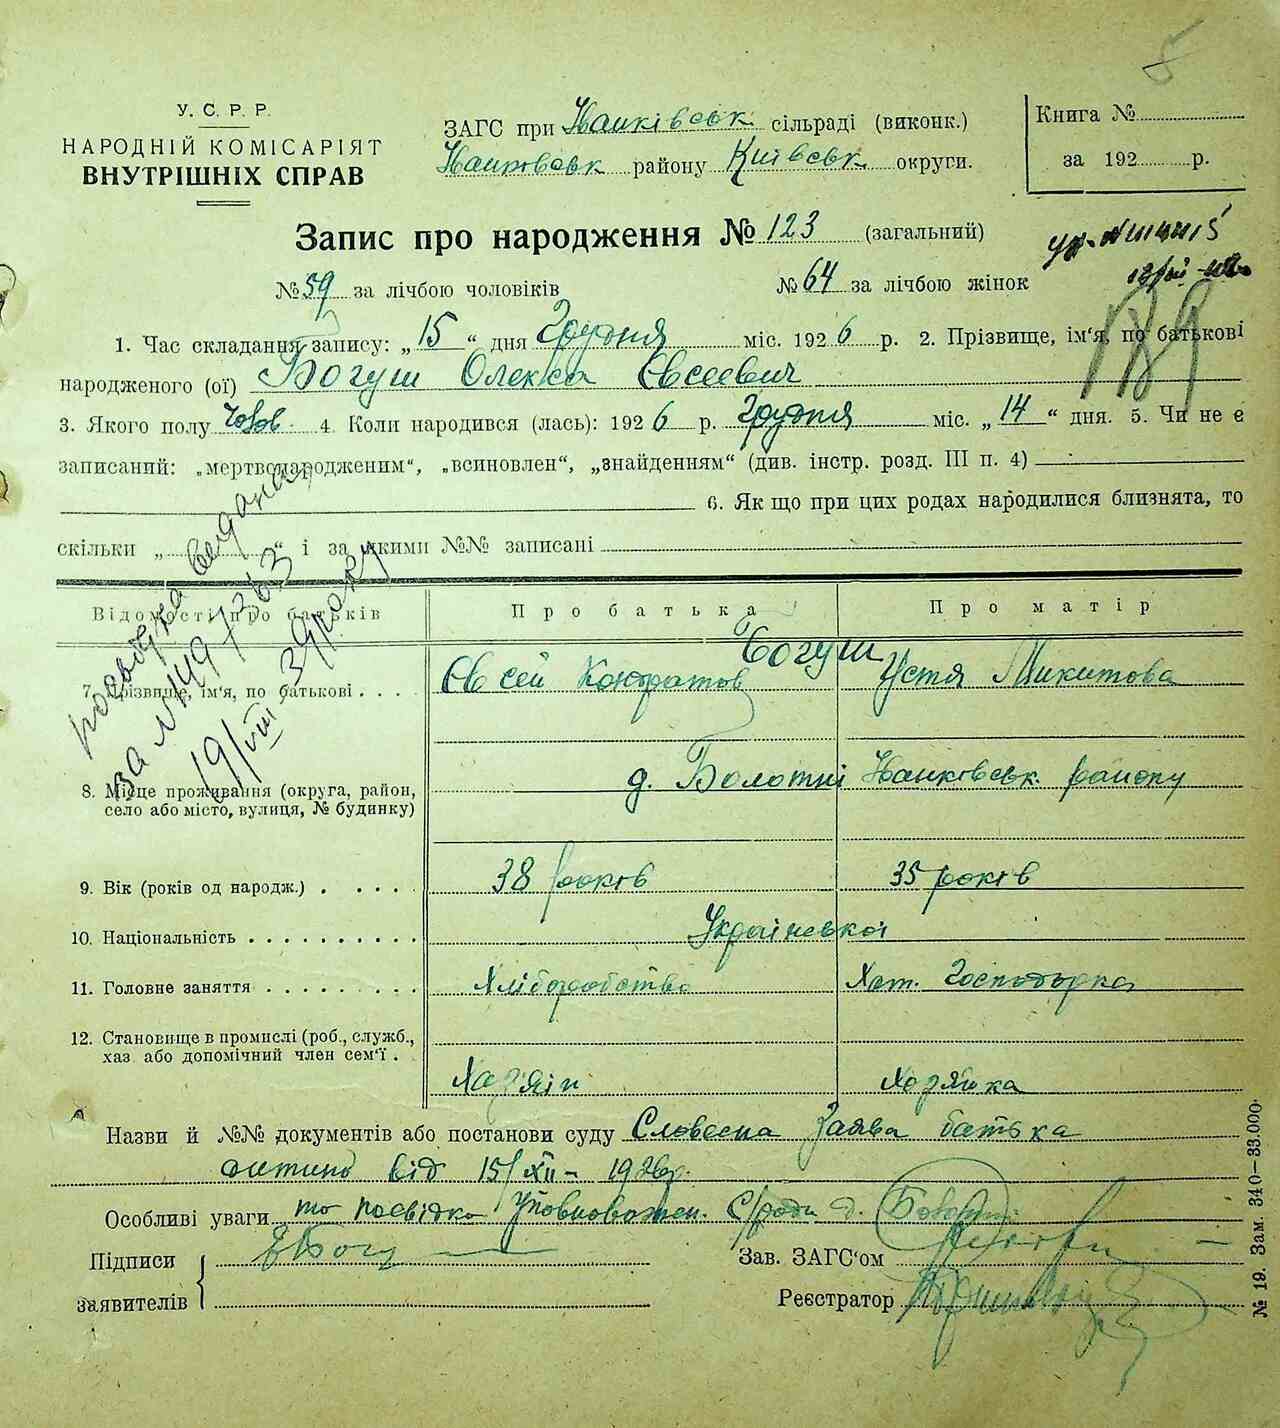 5
У. С. Р. Р.
НАРОДНІЙ КОМІСАРІЯТ
ВНУТРІШНІХ СПРАВ
ЗАГС при сільраді (виконк.)
району Київськ округи.
Книга №
за 192 р.
Запис про народження № 123 (загальний)
№ 59 за лічбою чоловіків № 64 за лічбою жінок
189
1. Час складання запису: „15“ дня Грудня міс. 1926 р. 2. Прізвище, ім‘я, по батькові
народженого (ої) Богуш Олекса Євсеєвич
3. Якого полу чолов. 4. Коли народився (лась): 1926 р. Грудня міс. „14“ дня. 5. Чи не є
записаний: „мертвонародженим“, „всиновлен“, „знайденням“ (див. інстр. розд. III п. 4)
6. Як що при цих родах народилися близнята, то
скільки „ “ і за якими №№ записані
Відомості про батьків Про батька Про матір
Богуш
7. Прізвище, ім‘я, по батькові . . . . Євсей Кондратов Устя Микитова
8. Місце проживання (округа, район,
село або місто, вулиця, № будинку)
д. Болотні району
9. Вік (років од народж.) . . . . . 38 років 35 років
10. Національність . . . . . . . . . . Української
11. Головне заняття . . . . . . . . . Хліборобство Хат. Господарка
12. Становище в промислі (роб., служб.,
хаз або допомічний член сем‘ї .
Хазяїн Хазяйка
Назви й №№ документів або постанови суду Словесна Заява батька
від 15/XII – 1926р.
Особливі уваги та посвідка Уповноважен. С/ради д.
Підписи
заявителів
ЕБогу
Зав. ЗАГС‘ом
Реєстратор
№ 19. Зам. 340—33.000.
посвідка видана
за № 149/263
19/VIII 39 року